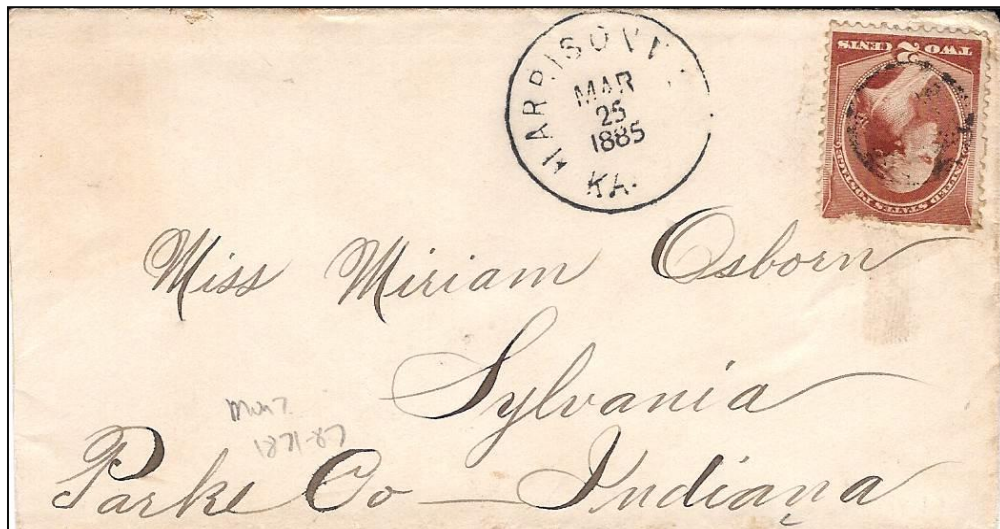 MAR
25
1885
KA.
TWO 2 CENTS
UNITED STATES POSTAGE
Miss Miriam Osborn
Sylvania
1871-87
Parke Co — Indiana